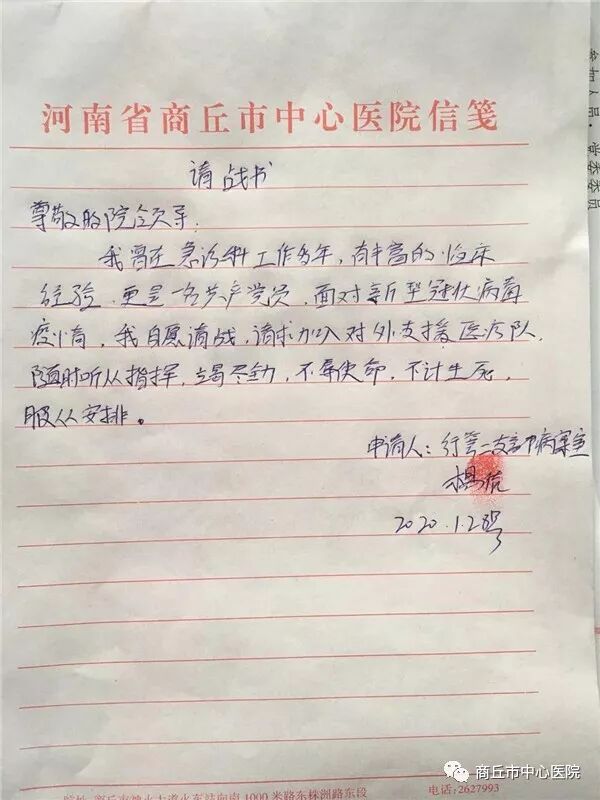 河南省商丘市中心医院信笺
请战书
尊敬的院领导：
我曾在急诊科工作多年，有丰富的临床
经验，更是一名共产党员，面对新型冠状病毒
疫情，我自愿请战，请求加入对外支援医疗队，
随时听从指挥，竭尽全力，不辱使命，不计生死，
服从安排。
申请人：行管二支部病案室
杨
2020.1.28号
参加人员：党委委员
商丘市中心医院
1000米路东株洲路东段
电话：2627993